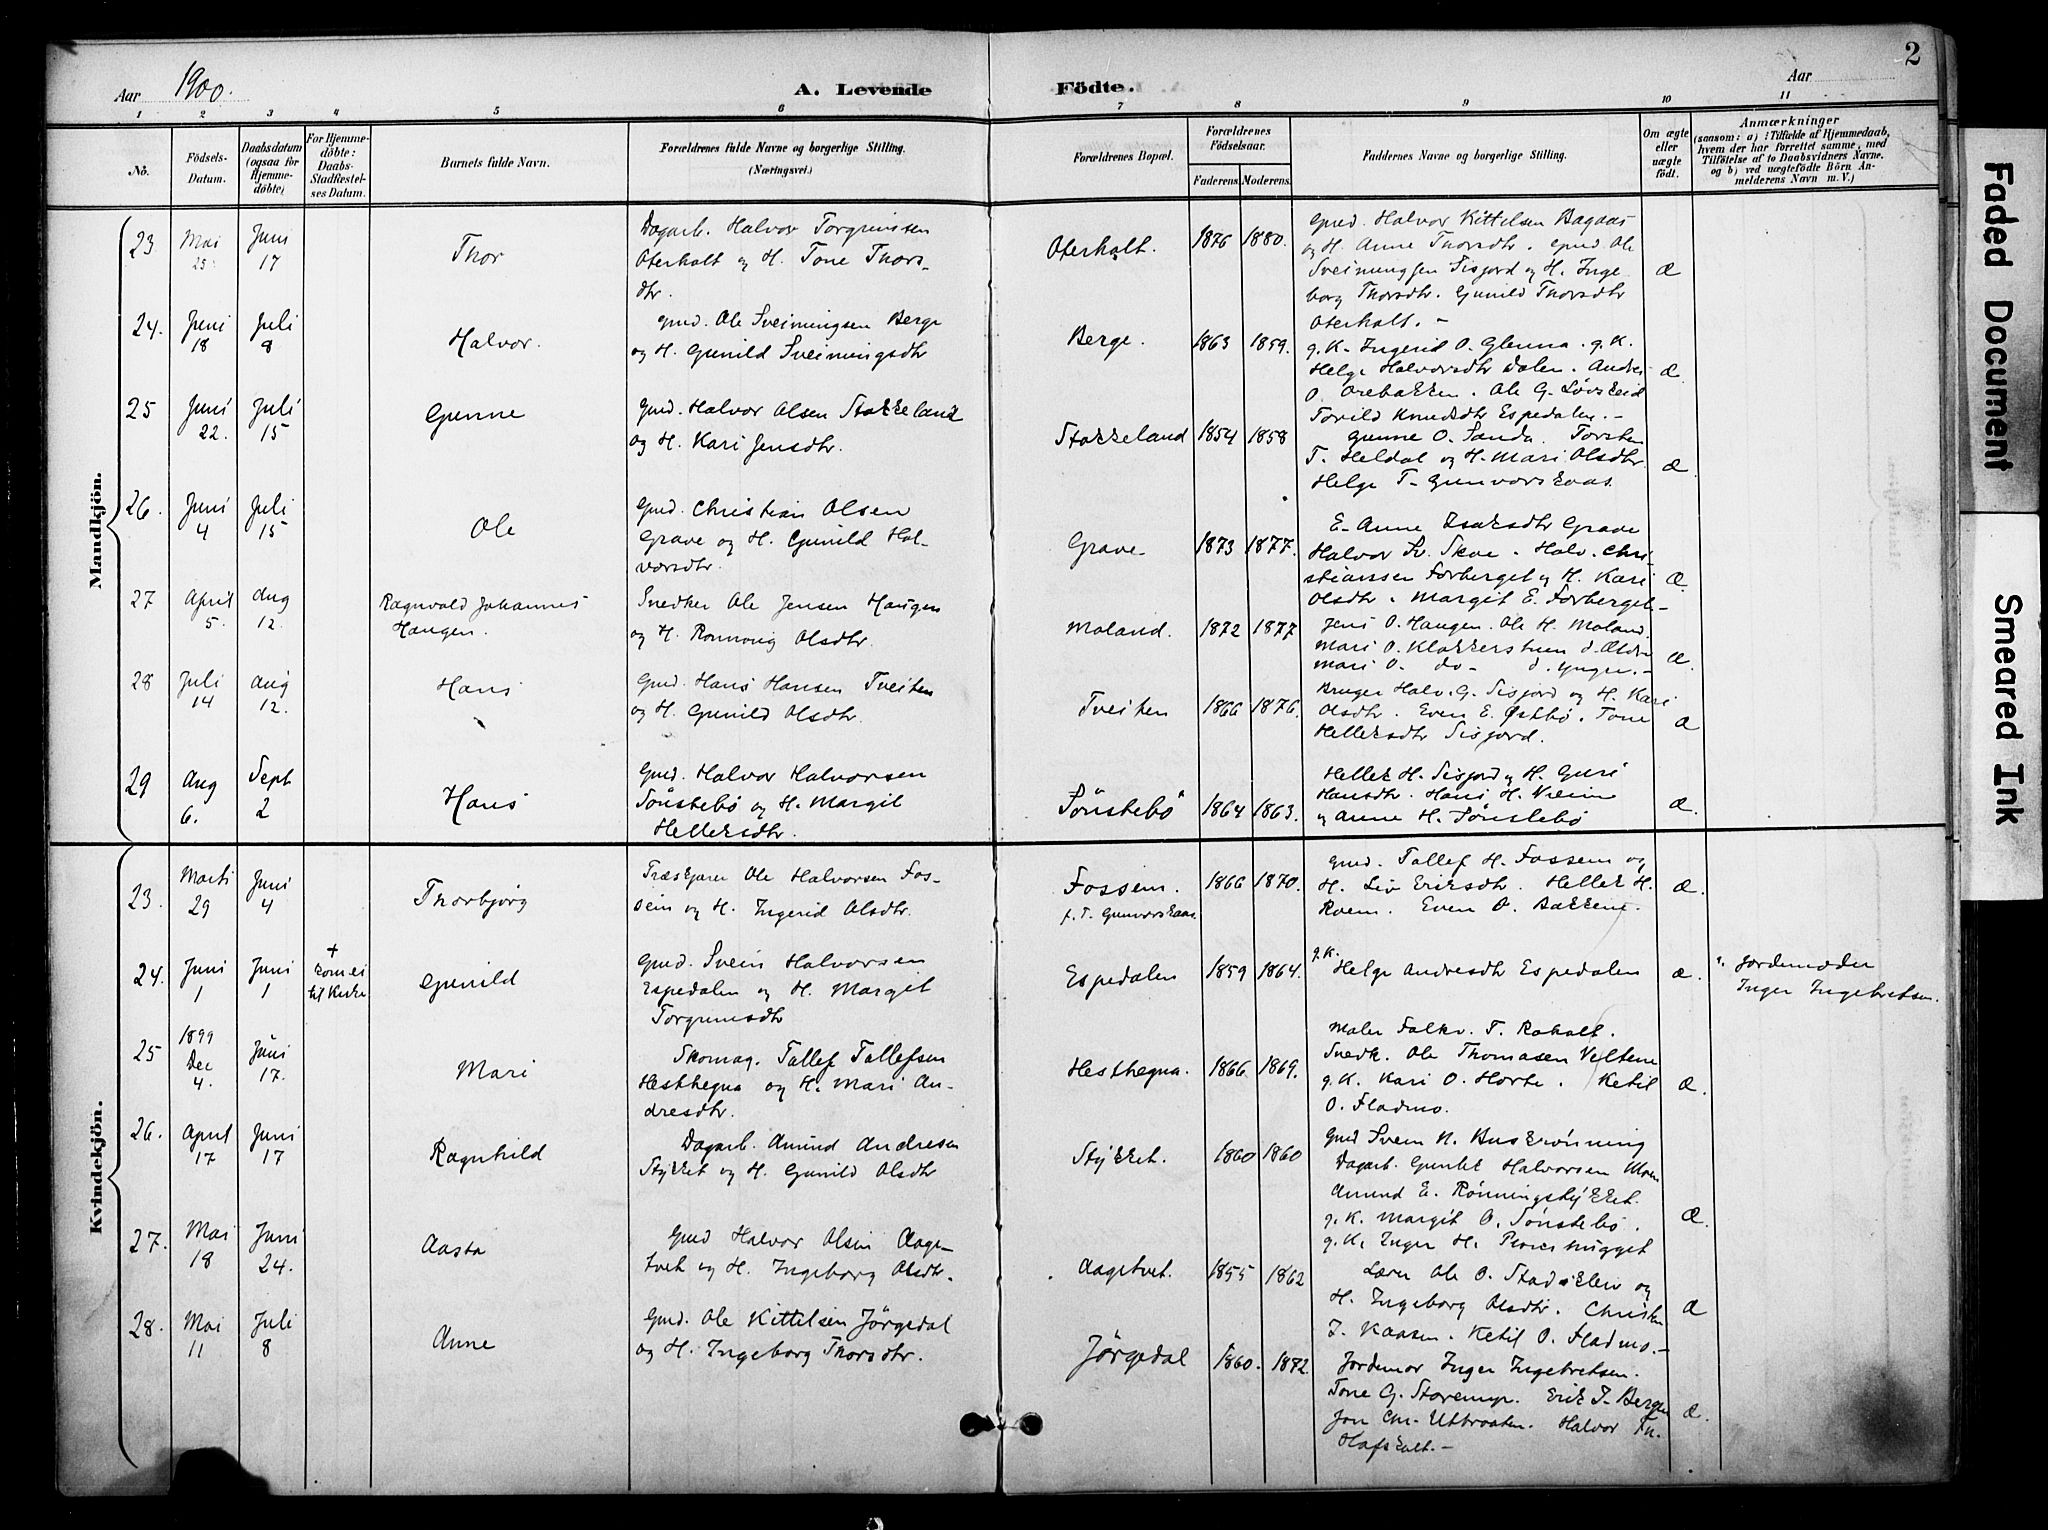 2
Aar 1900.
A. Levende Födte.
Aar
1 2 3 4 5 6 7 8 9 10 11
No.
Födsels-Datum.
Daabsdatum (ogsaa for Hjemmedöbte)
For Hjemmedöbte: Daabs-Stadfæstelses Datum.
Barnets fulde Navn.
Forældrenes fulde Navne og borgerlige Stilling. (Næringsvei.)
Forældrenes Bopæl.
Forældrenes Födselsaar.
Faderens. Moderens.
Faddernes Navne og borgerlige Stilling.
Om ægte eller uægte födt.
Anmærkninger
(saasom: a) i Tilfælde af Hjemmedaab,
hvem der har forrettet samme, med
Tilföielse af to Daabsvidners Navne.
og b) ved uægtefödte Börn An-
melderens Navn m. V.)
Mandkjön.
23. Mai 25. Juni 17 Thor
Dagarb. Halvor Torgrimsen
Oterholt og H. Tone Thors-
dtr.
Oterholt. 1876 1880.
Gmd. Halvor Kittelsen Bagaas
og H. Anne Thorsdtr. Gmd Ole
Sveinungsen Sisjord og H. Inge
borg Thorsdtr. Gunild Thorsdtr
Oterholt. -
Æ
24. Juni 18 Juli 8 Halvor.
Gmd. Ole Sveinungsen Berge
og H. Gunild Sveinungsdtr
Berge. 1863 1859.
g. K. Ingerid O. Glenna. g. K.
Helge Halvorsdtr Dalen. Andres
O. Orebakken. Ole G. Løvskeid
Torild Knudsdtr Espedalen. -
Æ
25 Juni 22. Juli 15 Gunne
Gmd. Halvor Olsen Stokkeland
og H. Kari Jensdtr.
Stokkeland 1854 1858
Gunne O. Sanda. Torsten
T. Heldal og H. Mari Olsdtr.
Helge T. Gunvorskaas.
Æ
26. Juni 4 Juli 15 Ole
Gmd. Christian Olsen
Grave og H. Gunild Hal-
vorsdtr.
Grave 1873 1877.
E. Anne Isaksdtr Grave
Halvor Sv. Skoe. Halv. Chri-
stianssen Forberget og H. Kari
Olsdtr. Margit E. Forberget -
Æ.
27 April 5. Aug 12. Ragnvald Johannes
Haugen.
Snedker Ole Jensen Haugen
og H. Rønnaug Olsdtr.
Moland. 1872 1877
Jens O. Haugen. Ole H. Moland.
Mari O. Klokkerstuen d. Ældre
Mari O. do - d. yngre. -
Æ.
28 Juli 14 Aug 12. Hans
Gmd. Hans Hansen Tveiten
og H. Gunild Olsdtr.
Tveiten 1866 1876.
Bruger Halv. G. Sisjord og H. Kari
Olsdtr. Even E. Østbø. Tone
Helleksdtr Sisjord.
Æ
29 Aug 6. Sept 2 Hans
Gmd. Halvor Halvorsen
Sönstebö og H. Margit
Helleksdtr.
Sönstebö 1864 1863.
Hellek H. Sisjord og H. Guri
Hansdtr. Hans H.
og Anne H. Sönstebö
Æ.
Kvindekjön.
23. Marts 29 Juni 4 Thorbjörg
Træskjærer Ole Halvorsen Fos-
sein og H. Ingerid Olsdtr.
Fossem. f. T. Gunvorskaas. 1866 1870.
Gmd. Tallef H. Fossem og
H. Liv Eriksdtr. Hellek H.
Roem. Even O. Bakkene.
Æ.
24. Juni 1 Juni 1 + kom ei til Kirke Gunild
Gmd. Svein Halvorsen
Espedalen og H. Margit
Torgrimsdtr
Espedalen 1859 1864.
g. K.
Helge Andresdtr Espedalen
Æ.
Jordemoder
Inger Ingebretsen.
25 1899 Dec 4. Juni 17. Mari
Skomag. Tallef Tallefsen
Hesthegna og H. Mari An-
dresdtr.
Hesthegna. 1866 1869.
Maler Falkv. T. Roholt.
Snedk. Ole Thomasen Veltene
g. K. Kari O. Horte. Ketil
O. Fladmo.
Æ.
26. April 17 Juni 17 Ragnhild
Dagarb. Amund Andresen
Stykket og H. Gunild Olsdtr
Stykket. 1860 1860
Gmd Svein N. Buskrønning
Dagarb. Gunlek Halvorsen Moen
Amund E. Rønningstykket.
g. K. Margit O. Sønstebø.
g. K. Inger H.
Æ.
27. Mai 18 Juni 24. Aasta
Gmd Halvor Olsen Aage-
tvet og H. Ingeborg Olsdtr.
Aagetvet. 1855 1862
Lærer Ole O. Stadskleiv og
H. Ingeborg Olsdtr. Christen
J. Kaasen. Ketil O. Fladmo. -
Æ
28. Mai 11 Juli 8 Anne
Gmd. Ole Kittilsen Jörgedal
og H. Ingeborg Thorsdtr.
Jörgedal 1860. 1872.
Jordemor Inger Ingebretsen.
Tone G. Storemyr. Erik J. Bergen
Jon Chr. Uttraaten. Halvor Tn.
Hafskolt. -
Æ.
Faded Document
Smeared Ink